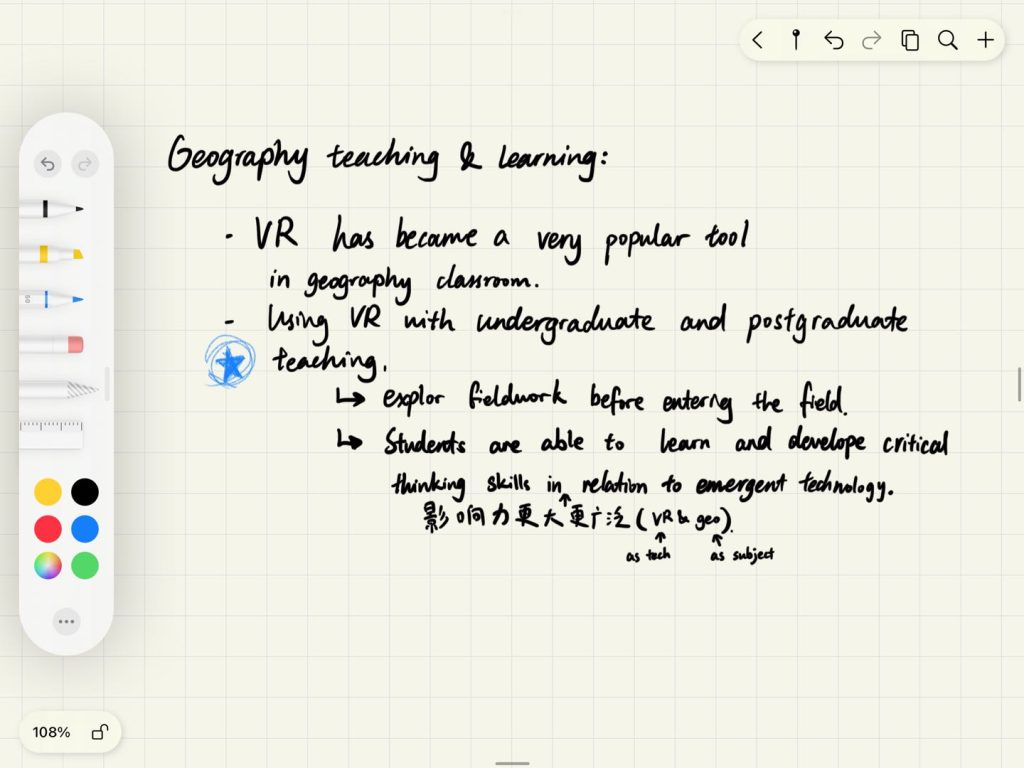 Geography teaching & learning:
- VR has became a very popular tool
in geography classroom.
- Using VR with undergraduate and postgraduate
teaching.
↳ explor fieldwork before enterng the field.
↳ Students are able to learn and develope critical
thinking skills in relation to emergent technology.
影响力更大更广泛(VR & geo).
as tech as subject
108%